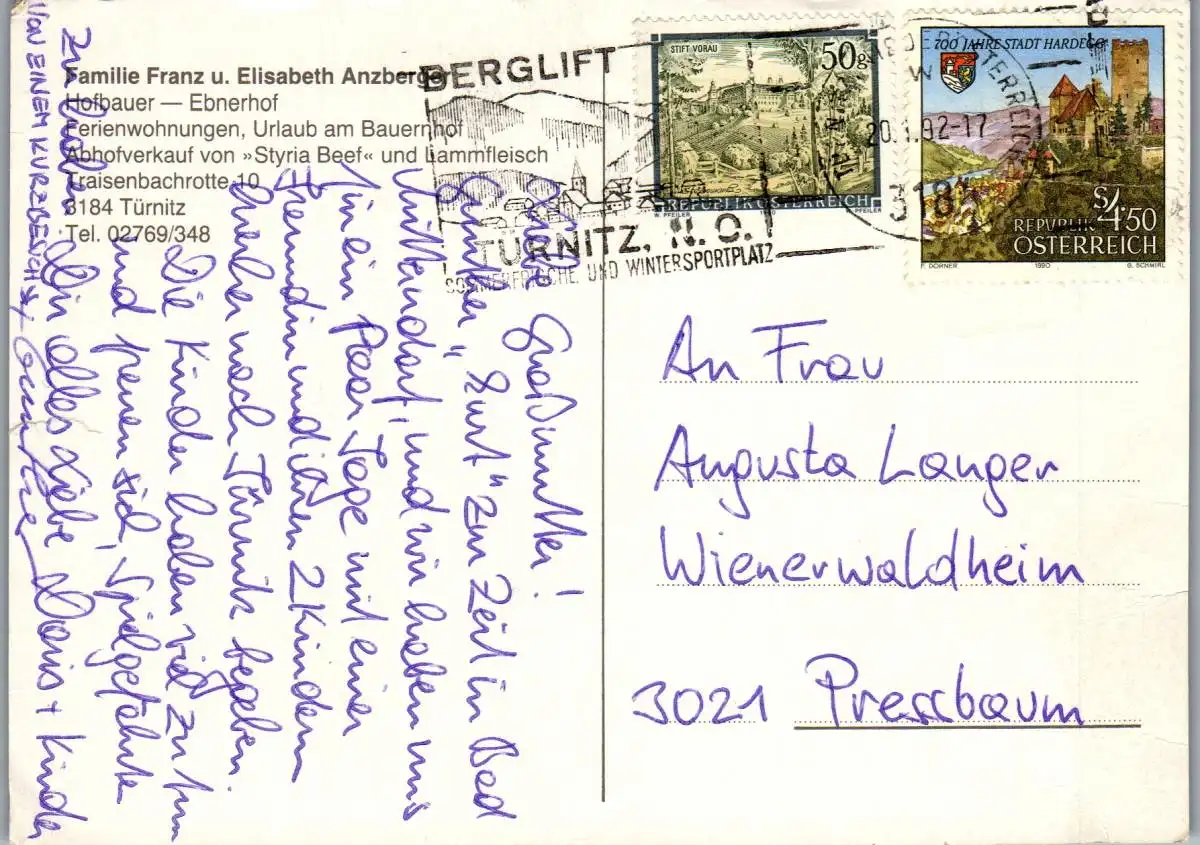 Familie Franz u. Elisabeth Anzberger
Hofbauer — Ebnerhof
Ferienwohnungen, Urlaub am Bauernhof
Abhofverkauf von »Styria Beef« und Lammfleisch
Traisenbachrotte 10
3184 Türnitz
Tel. 02769/348
BERGLIFT
TÜRNITZ, N.Ö.
SOMMERFRISCHE UND WINTERSPORTPLATZ
STIFT VORAU
50g
REPUBLIK ÖSTERREICH
W. PFEILER
W. PFEILER
700 JAHRE STADT HARDEGG
S 4.50
REPUBLIK
ÖSTERREICH
F. DORNER
1990
G. SCHMIRL
20.1.92-17
318
Liebe Großmutter!
Günther "kurt" zur Zeit in Bad
Mitterndorf, und wir haben uns
für ein Paar Tage mit einer
Freundin und ihren 2 Kindern
nach Türnitz begeben.
Die Kinder haben viel zu tun
und freuen sich,
Spielgefährten
zu haben.
Dir alles Liebe Doris + Kinder
VON EINEM KURZBESUCH
An Frau
Augusta Langer
Wienerwaldheim
3021 Pressbaum